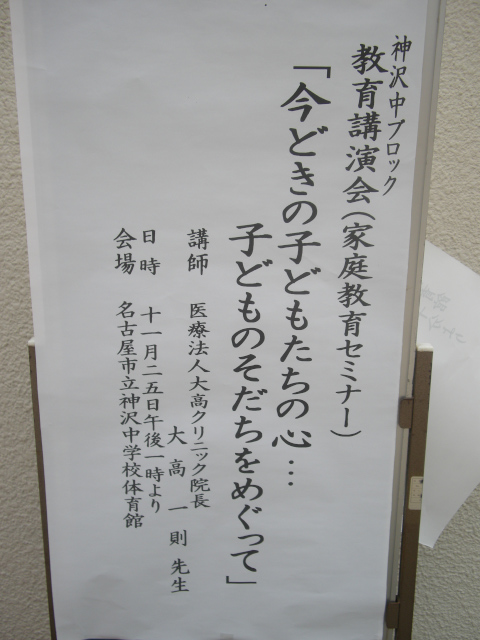 神沢中ブロック
教育講演会(家庭教育セミナー)
「今どきの子どもたちの心…
子どものそだちをめぐって」
講師 医療法人大高クリニック院長
大高一則先生
日時 十一月二五日午後一時より
会場 名古屋市立神沢中学校体育館